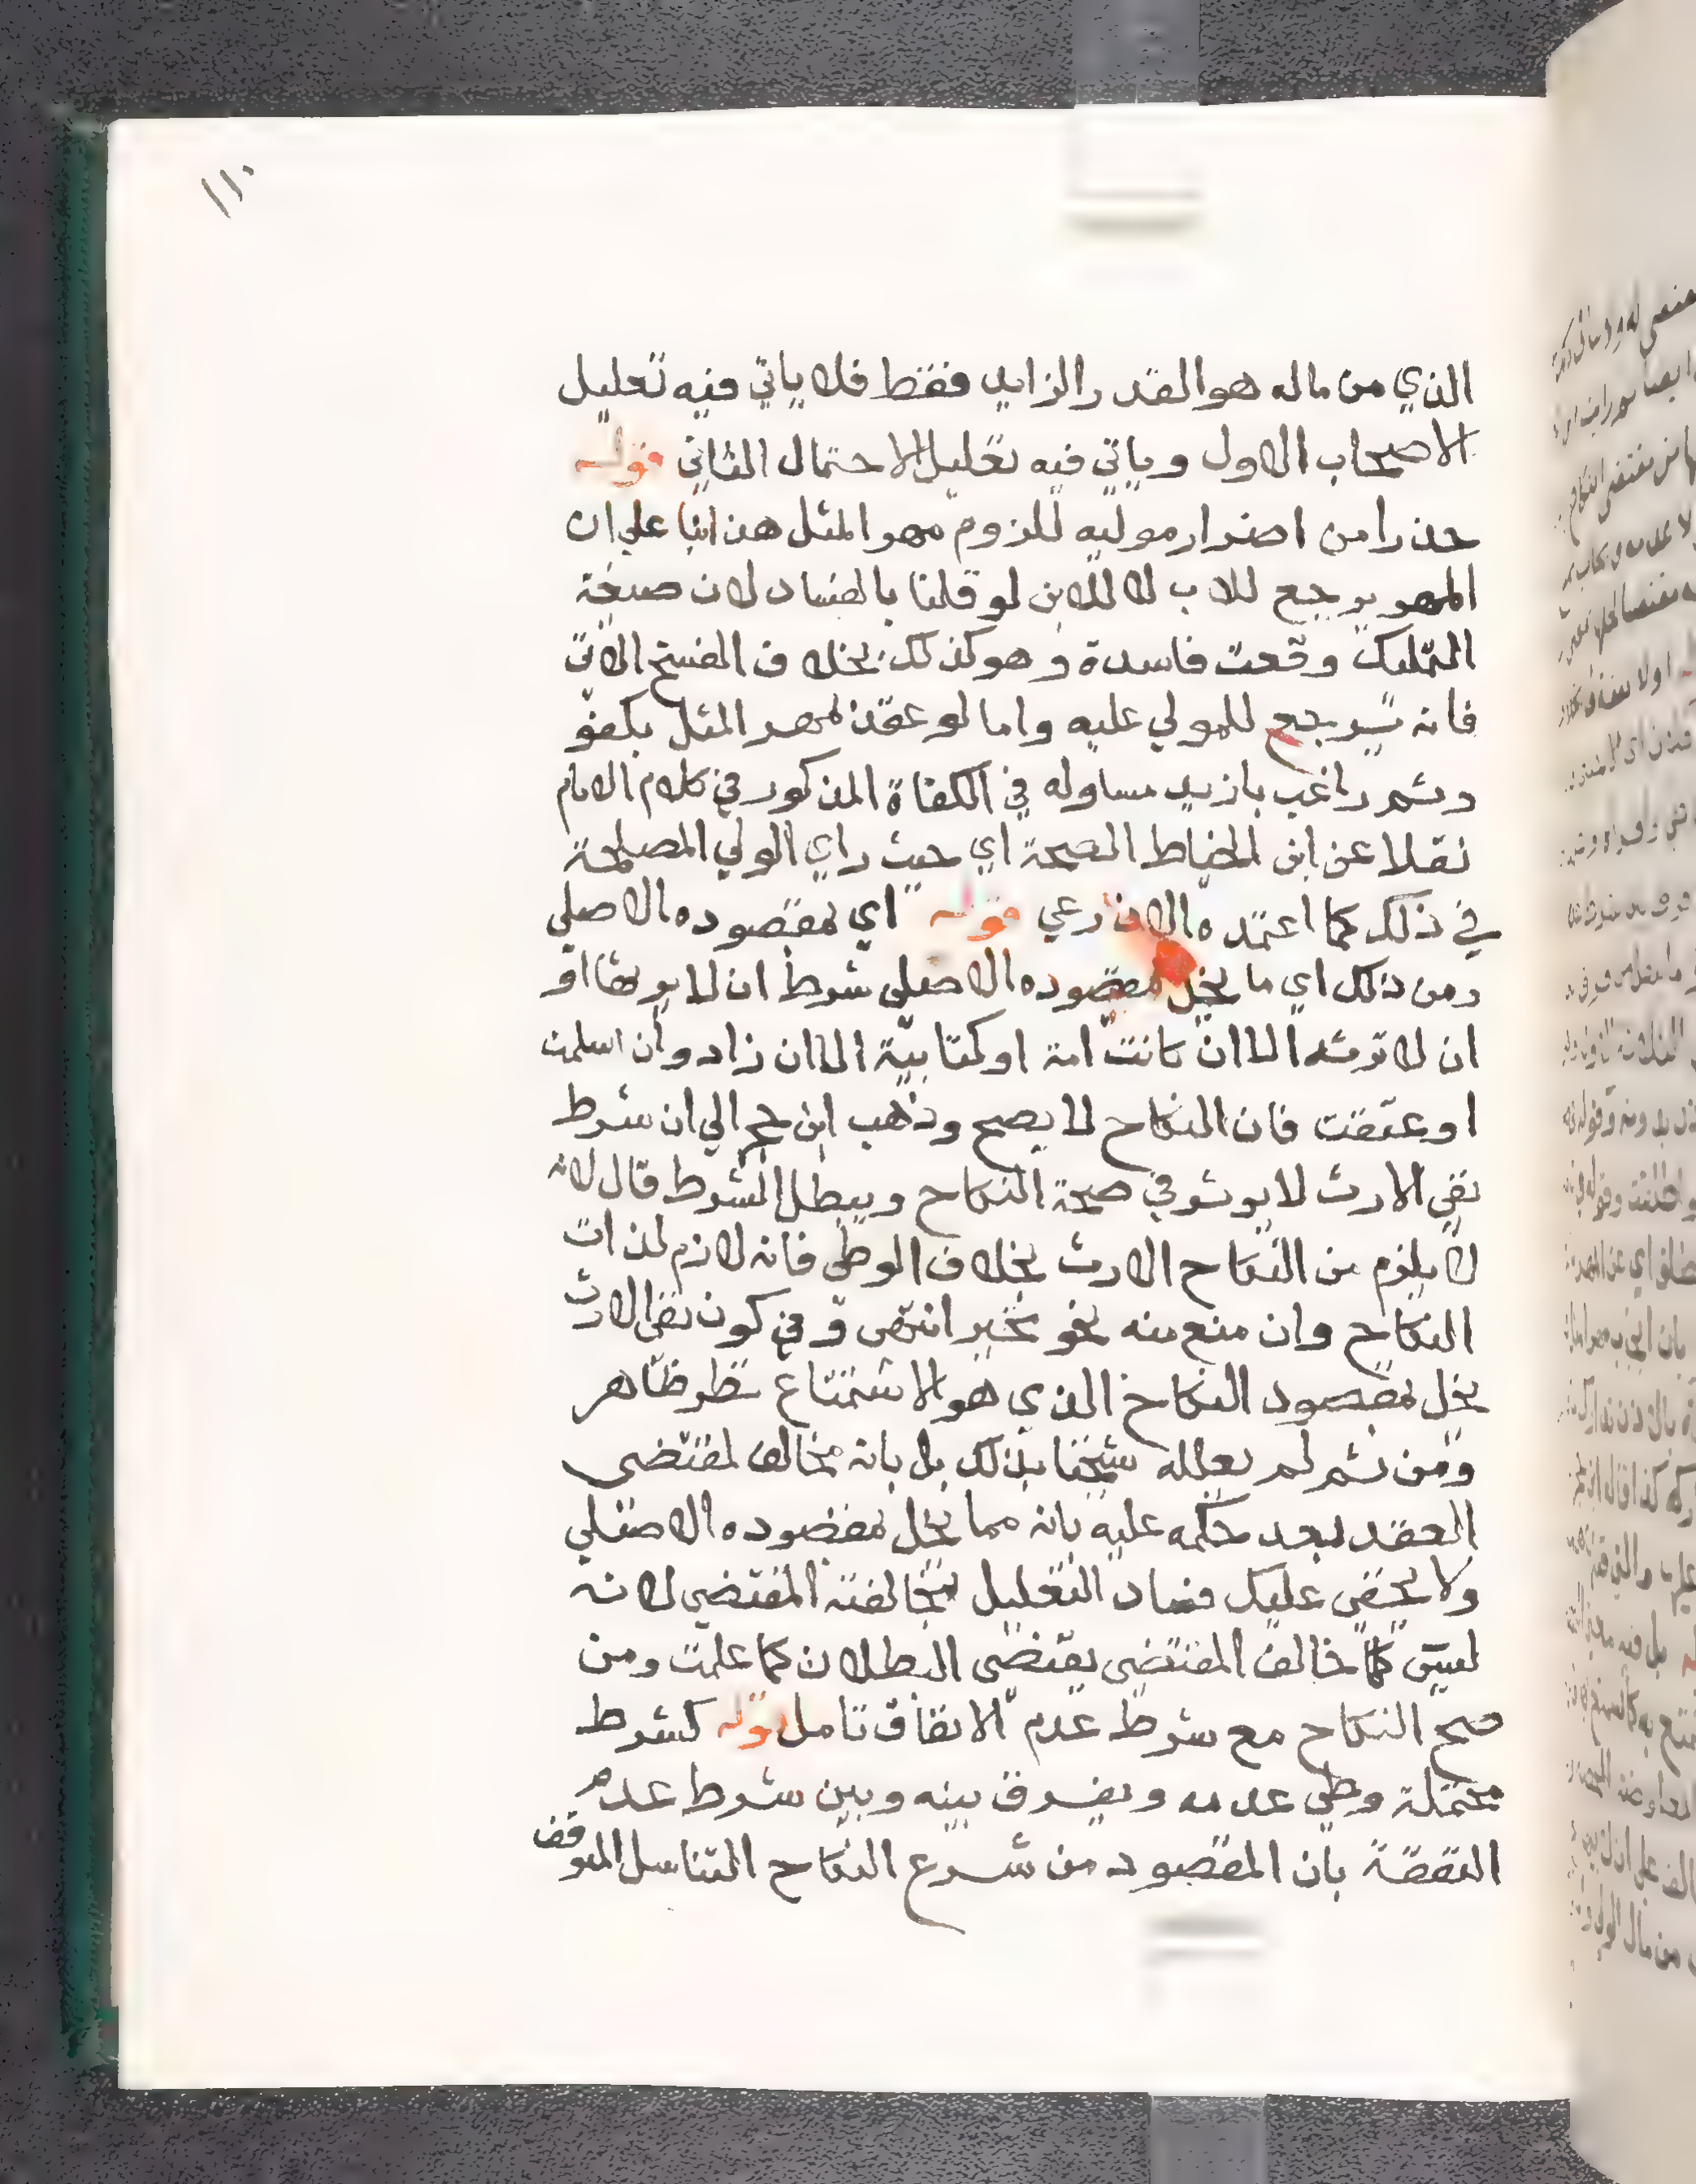 ١١٠
الذي من ماله هو القدر الزايد فقط فلا ياتي فيه تعليل
الاصحاب الاول وياتي فيه تعليل الاحتمال الثاني قوله
حذرا من اضرار موليه للزوم مهر المثل هذا بنا علي ان
المهر يرجع للاب لا للابن لو قلنا بالفساد لان صيغة
التمليك وقعت فاسدة وهو كذلك بخلاف الفسخ الاتي
فانه يرجع للمولي عليه واما لو عقد بمهر المثل بكفو
وثم راغب بازيد مساو له في الكفاة المذكور في كلام الامام
نقلا عن ابن الخياط الصحة اي حيث راي الولي المصلحة
في ذلك كما اعتمده الاذرعي قوله اي بمقصوده الاصلي
ومن ذلك اي ما يخل بمقصوده الاصلي شرط ان لا يرثها او
ان لا ترثه الا ان كانت امة او كتابية الا ان زاد وان اسلمت
او عتقت فان النكاح لا يصح وذهب ابن حجر الي ان شرط
نفي الارث لا يوثر في صحة النكاح ويبطل الشرط قال لانه
لا يلزم من النكاح الارث بخلاف الوطي فانه لازم لذات
النكاح وان منع منه نحو تخير انتهى وفي كون نفي الارث
يخل بمقصود النكاح الذي هو الاستمتاع نظر ظاهر
ومن ثم لم يعلله شيخنا بذلك بل بانه مخالف لمقتضى
العقد بعد حكمه عليه بانه مما يخل بمقصوده الاصلي
ولا يخفى عليك فساد التعليل بمخالفته المقتضي لانه
ليس كلما خالف المقتضي يقتضي البطلان كما علمت ومن
صح النكاح مع شرط عدم الانفاق تامل قوله كشرط
محتملة وطي عدمه ويفرق بينه وبين شرط عدم
النفقة بان المقصود من شرع النكاح التناسل المتوقف